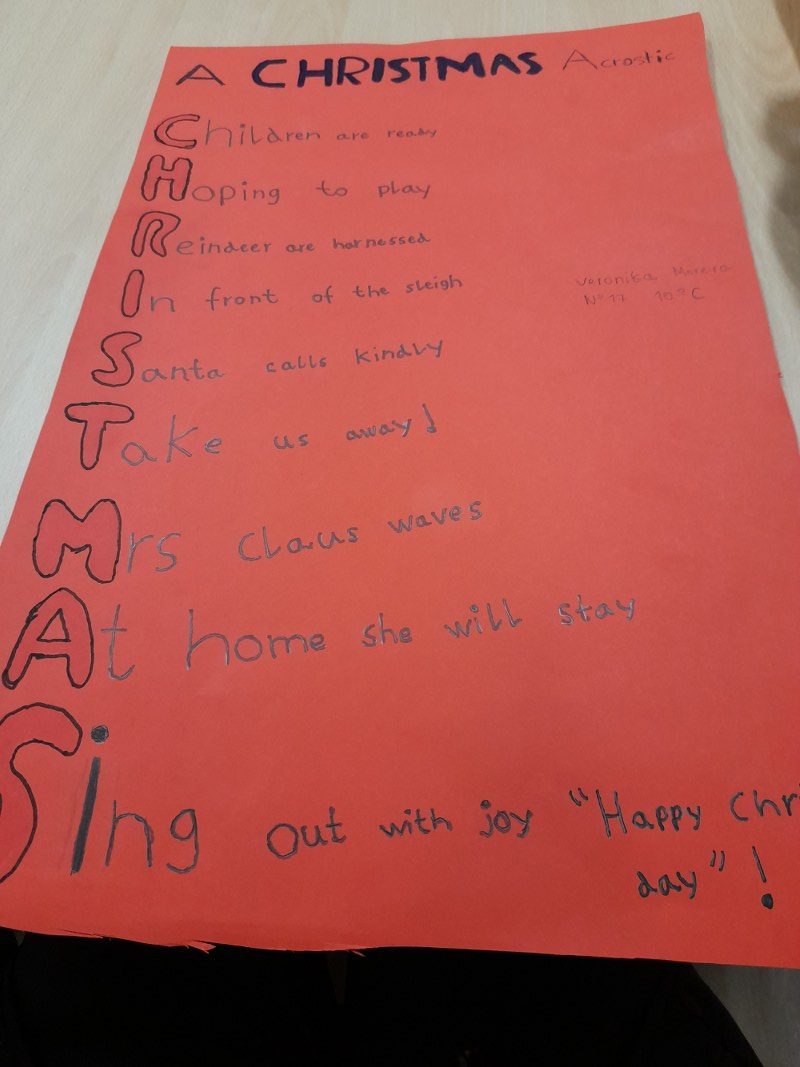 A CHRISTMAS Acrostic
Children are ready
Hoping to play
Reindeer are harnessed
In front of the sleigh
Veronika Moreira
Nº17 10ºC
Santa calls kindly
Take us away!
Mrs Claus waves
At home she will stay
Sing out with joy "Happy Chri
day"!